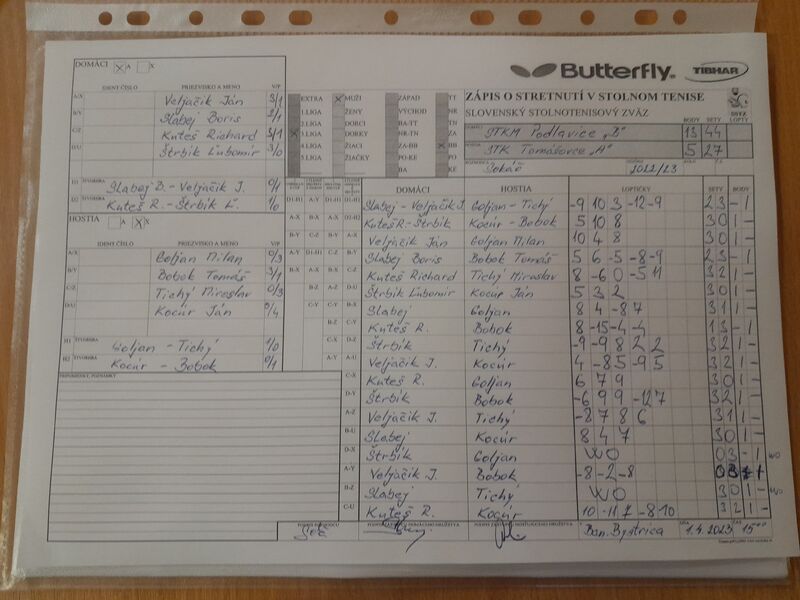 DOMÁCI A X
Butterfly TIBHAR
IDENT. ČÍSLO PRIEZVISKO A MENO V/P
A/X Veljačik Ján 3/1
B/Y Slabej Boris 3/1
C/Z Kuteš Richard 3/1
D/U Štrbík Ľubomír 3/0
D1 ŠTVORHRA Slabej B. - Veljačik J. 0/1
D2 ŠTVORHRA Kuteš R. - Štrbík Ľ. 1/0
HOSTIA A X
IDENT. ČÍSLO PRIEZVISKO A MENO V/P
A/X Goljan Milan 0/3
B/Y Bobok Tomáš 3/1
C/Z Tichý Miroslav 0/3
D/U Kocúr Ján 0/4
H1 ŠTVORHRA Goljan - Tichý 1/0
H2 ŠTVORHRA Kocúr - Bobok 0/1
PRIPOMIENKY, POZNÁMKY
EXTRA MUŽI ZÁPAD TT
1.LIGA ŽENY VÝCHOD NR
2.LIGA DORCI BA-TT TN
3.LIGA DORKY NR-TN ZA
4.LIGA ŽIACI ZA-BB BB
5.LIGA ŽIAČKY PO-KE PO
BA KE
ZÁPIS O STRETNUTÍ V STOLNOM TENISE
SLOVENSKÝ STOLNOTENISOVÝ ZVÄZ
BODY SETY LOPTY
STKM Podlavice "B" 13 44
STK Tomášovce "A" 5 27
2022/23
DOMÁCI HOSTIA LOPTIČKY SETY BODY
Slabej - Veljačik J. Goljan - Tichý -9 10 3 -12 -9 2 3 - 1
Kuteš R. - Štrbík Kocúr - Bobok 5 10 8 3 0 1 -
Veljačik Ján Goljan Milan 10 4 8 3 0 1 -
Slabej Boris Bobok Tomáš 5 6 -5 -8 -9 2 3 - 1
Kuteš Richard Tichý Miroslav 8 -6 0 -5 11 3 2 1 -
Štrbík Ľubomír Kocúr Ján 5 3 2 3 0 1 -
Slabej Goljan 8 4 -8 7 3 1 1 -
Kuteš R. Bobok 8 -15 -4 -4 1 3 - 1
Štrbík Tichý -9 -9 8 2 2 3 2 1 -
Veljačik J. Kocúr 4 -8 5 -9 5 3 2 1 -
Kuteš R. Goljan 6 7 9 3 0 1 -
Štrbík Bobok -6 9 9 -12 7 3 2 1 -
Veljačik J. Tichý -2 7 8 6 3 1 1 -
Slabej Kocúr 8 4 7 3 0 1 -
Štrbík Goljan WO 0 3 - 1 WO
Veljačik J. Bobok -8 -2 -8 0 3 - 1
Slabej Tichý WO 3 0 1 - WO
Kuteš R. Kocúr 10 -11 7 -8 10 3 2 1 -
Ban. Bystrica 1.4.2023 15